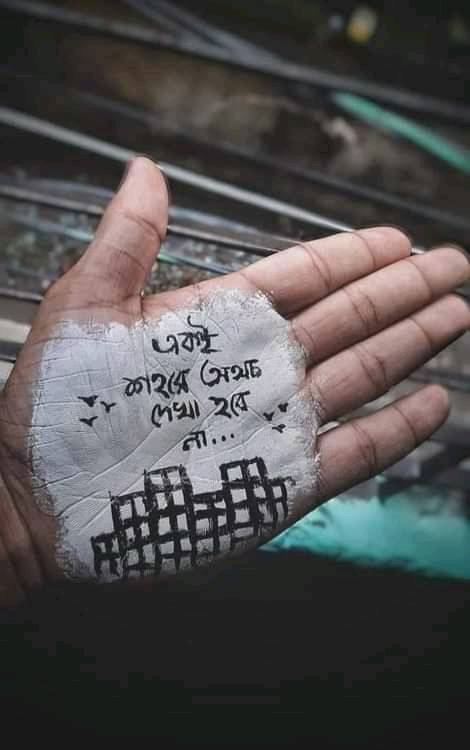 একই
শহরে অথচ
দেখা হবে
না...